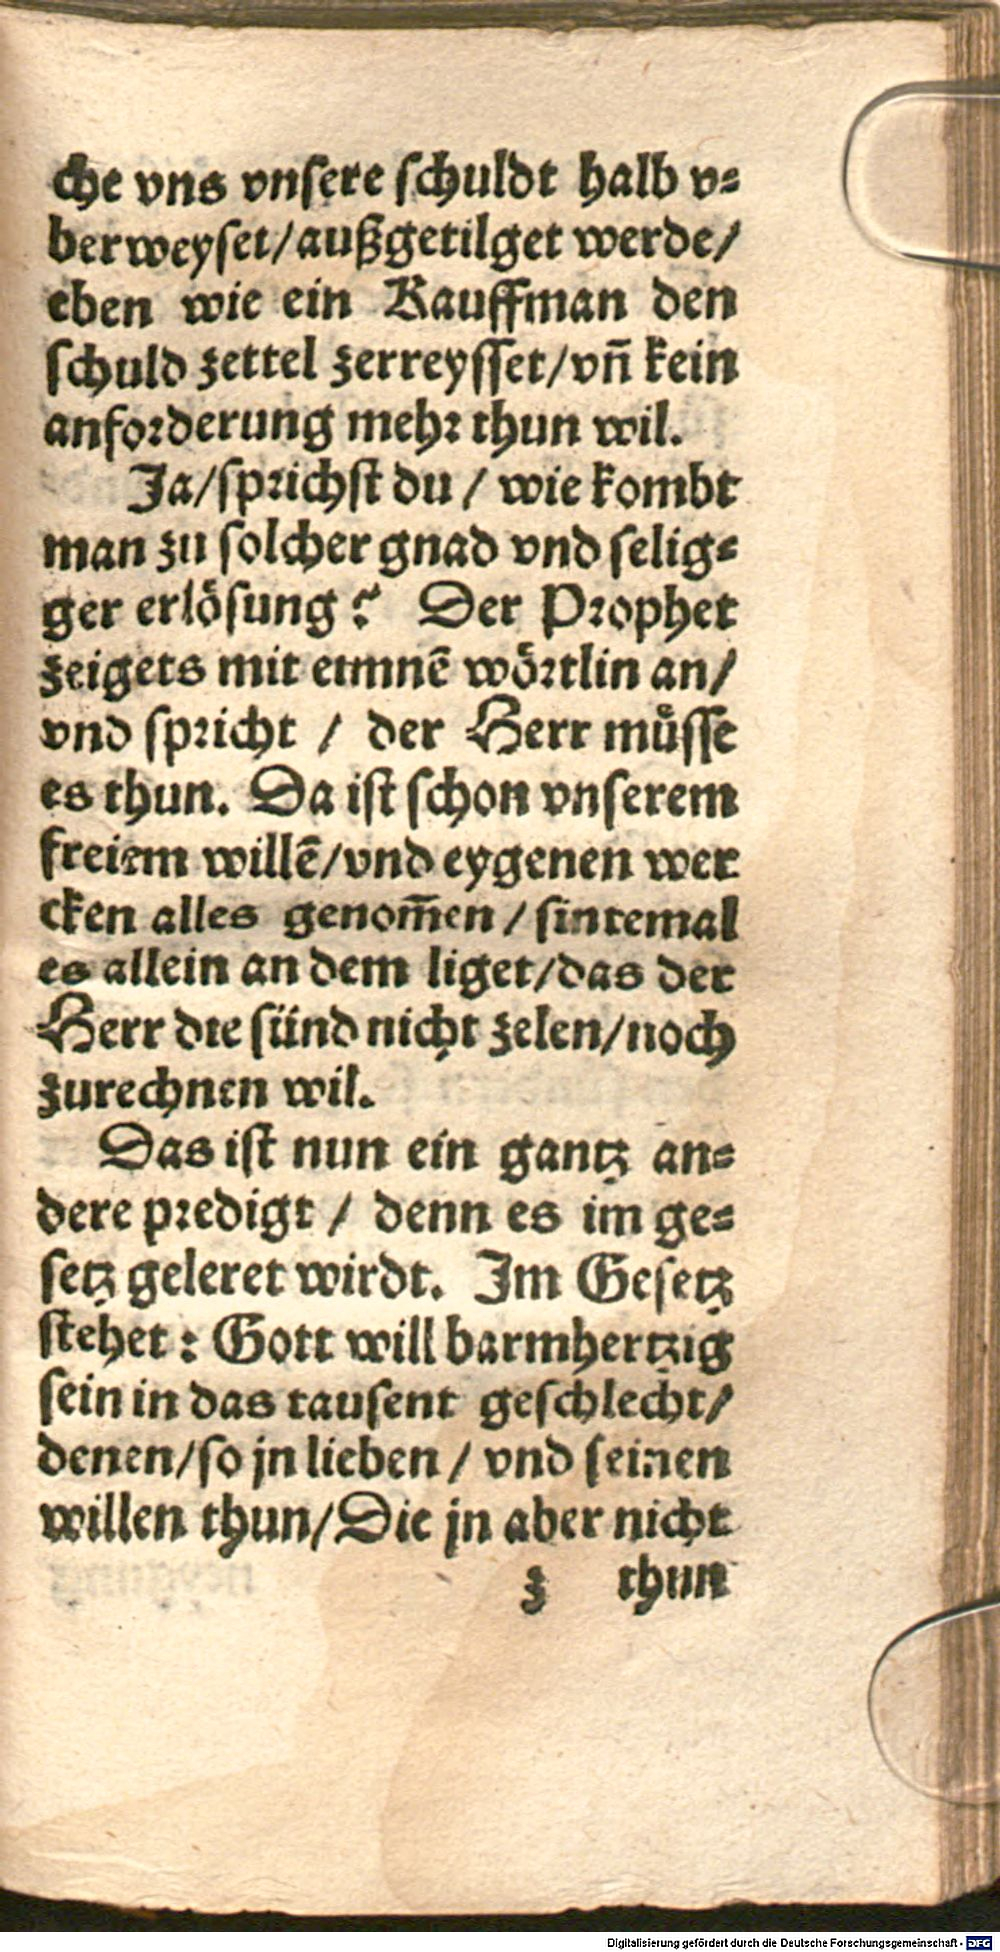 che vns vnsere schuldt halb v⸗
berweyset/außgetilget werde/
eben wie ein Kauffman den
schuld zettel zerreysset/vn̄ kein
anforderung mehr thun wil.
Ja/sprichst du / wie kombt
man zu solcher gnad vnd selig⸗
ger erlösung? Der Prophet
zeigets mit eimnē wörtlin an/
vnd spricht / der Herr muͤsse
es thun. Da ist schon vnserem
freiem willē/vnd eygenen wer
cken alles genom̄en / sintemal
es allein an dem liget/das der
Herr die sünd nicht zelen/noch
zurechnen wil.
Das ist nun ein gantz an⸗
dere predigt / denn es im ge⸗
setz geleret wirdt. Im Gesetz
stehet: Gott will barmhertzig
sein in das tausent geschlecht/
denen/so jn lieben / vnd seinen
willen thun/Die jn aber nicht
z thun
Digitalisierung gefördert durch die Deutsche Forschungsgemeinschaft - DFG